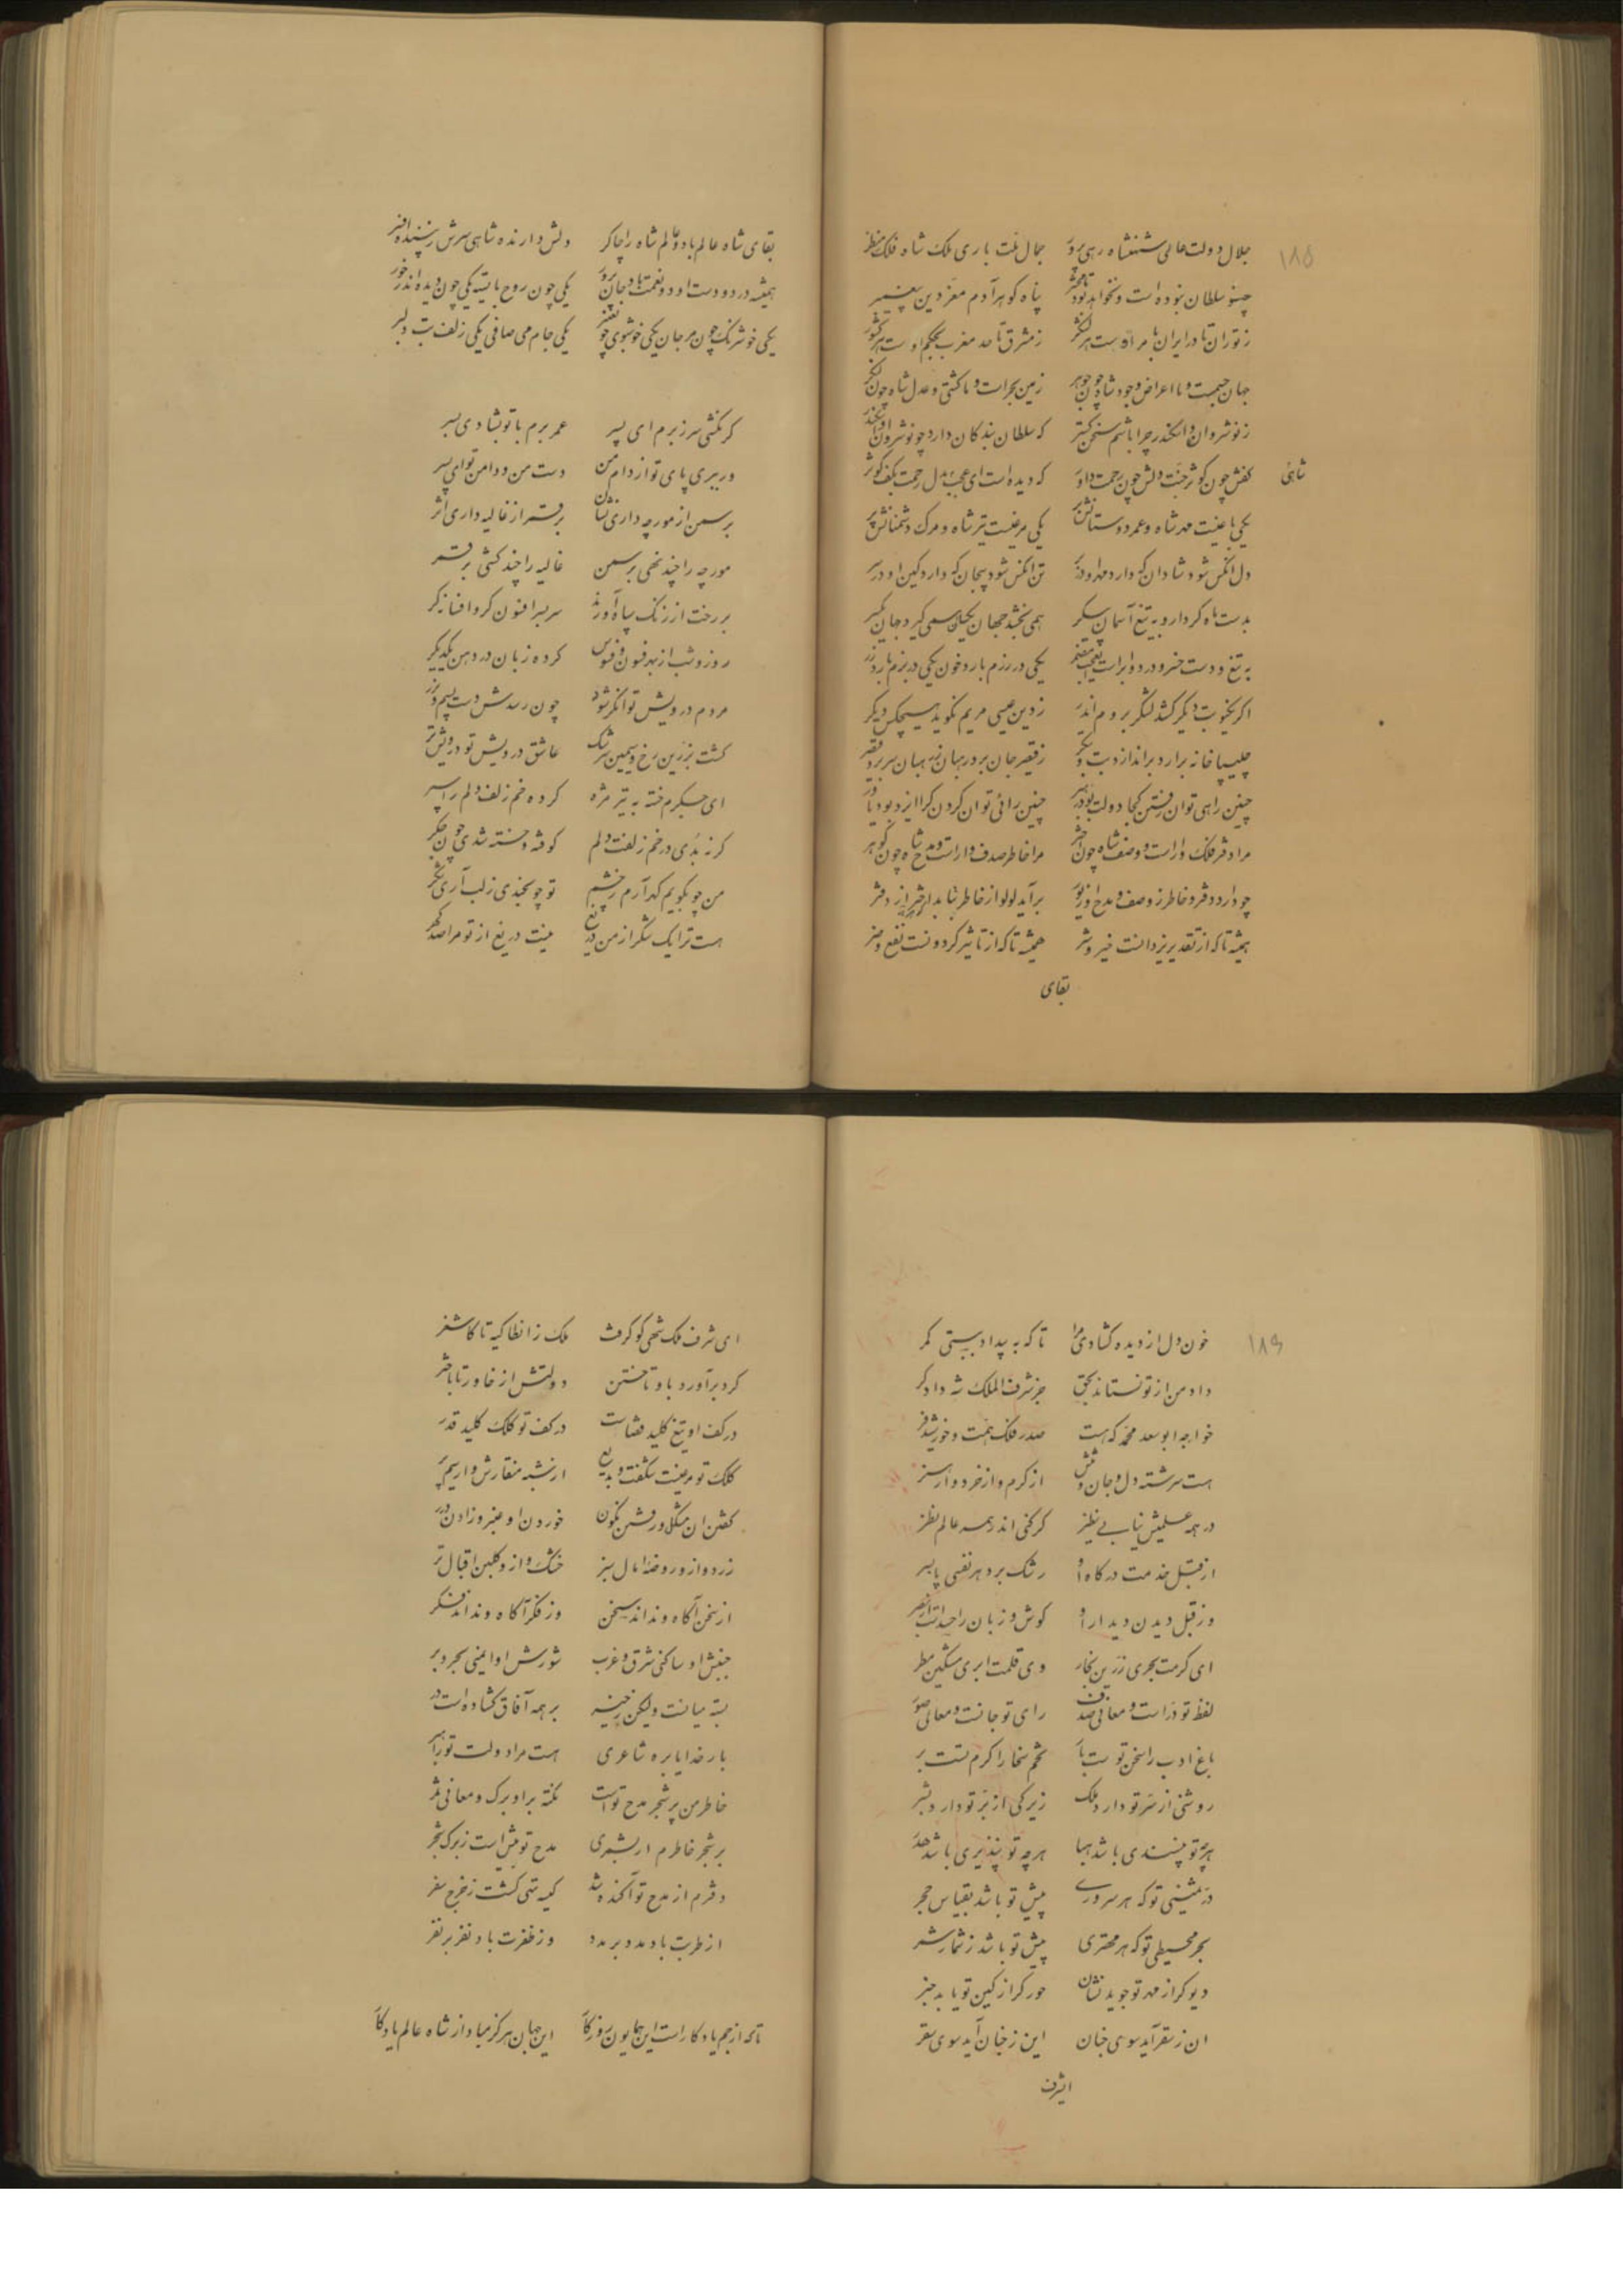 ۱۸۵
جلال دولت عالی شهنشاه رهی پرور جمال ملت باری ملک شاه فلک منظر
چنو سلطان نبوده است و نخواهد بود تا محشر پناه گوهر آدم معز دین پیغمبر
ز توران تا در ایران بامر اوست هر لشکر ز مشرق تا حد مغرب بحکم اوست هر کشور
جهان جسمست و ما اعراض وجود شاه چون جوهر زمین بحر است و ما کشتی و عدل شاه چون لنگر
ز نوشروان و اسکندر چرا باشم سخن گستر که سلطان بندگان دارد چو نوشروان و اسکندر
ثانی
کفش چون کوثر جنت دلش چون رحمت داور که دیده است ای عجب بدل رحمت بکف کوثر
یکی باغیست مهر شاه و عمر دوستانش بر یکی مرغیست تیر شاه و مرگ دشمنانش پر
دل انکس شود شادان که دارد مهر او در بر تن انکس شود بیجان که دارد کین او در سر
بدست ماه کردار و به تیغ آسمان پیکر همی بخشد جهان یکسان همی گیرد جهان یکسر
به تیغ و دست خسرو در دو ابر است یعجب مضمر یکی در رزم بارد خون یکی در بزم بارد زر
اگر یکنوبت دیگر کشد لشکر بروم اندر ز دین عیسی مریم نگوید هیچکس دیگر
چلیپاخانه بردارد براندازد بت و بتگر ز قیصر جان برد رهبان ز رهبان سر برد قیصر
چنین راهی توان رفتن کجا دولت بود رهبر چنین رائی توان کردن کرا ایزد بود یاور
مرا دفتر فلک وار است و وصف شاه چون اختر مرا خاطر صدف وار است و مدح شاه چون گوهر
چو دارد دفتر و خاطر ز وصف و مدح او زیور برآید لولو از خاطر بتابد اختر از دفتر
همیشه تا که از تقدیر یزدانست خیر و شر همیشه تا که از تاثیر گردونست نفع و ضر
بقای
بقای شاه عالم باد و عالم شاه را چاکر دلش دارنده شاهی سرش زیبنده افسر
همیشه در دو دست او دو نعمت باد جان پرور یکی چون روح بایسته یکی چون دیده اندر خور
یکی خوش رنگ چون مرجان یکی خوشبوی چو عنبر یکی جام می صافی یکی زلف بت دلبر
گر نکشی سر ز برم ای پسر عمر برم با تو بشادی بسر
ور ببری پای تو از دام من دست من و دامن تو ای پسر
بر سمن از مورچه داری نشان بر قمر از غالیه داری اثر
مورچه را چند نهی بر سمن غالیه را چند کشی بر قمر
بر رخت از زنگ سپاه آورند سربسر افسون گر و افسانه گر
روز و شب از بهر فسون و فسوس کرده زبان در دهن یکدیگر
مردم درویش توانگر شود چون رسدش دست بسیم و بزر
گشت بزرین رخ و سیمین سرشک عاشق درویش تو درویش تر
ای جگرم خسته به تیر مژه کرده خم زلف دلم را سپر
گر نه بدی در خم زلفت دلم کوفته و خسته شدی چون جگر
من چو بگویم گهر آرم ز چشم تو چو بخندی ز لب آری شکر
هست ترا یک شکر از من دریغ نیست دریغ از تو مرا صد گهر
۱۸۶
خون دل از دیده گشادی مرا تا که به بیداد ببستی کمر
داد من از تو نستاند بحق جز شرف الملک شه دادگر
خواجه ابوسعد محمد که هست صدر فلک همت و خورشید فر
هست سرشته دل و جان و تنش از کرم و از خرد و از هنر
در همه علمیش نیابی نظیر گر کنی اندر همه عالم نظر
از قبل خدمت درگاه او رشک برد هر نفسی پا بسر
وز قبل دیدن دیدار او گوش و زبان را حسد است از بصر
ای کرمت بحری زرین بخار وی قلمت ابری مشکین مطر
لفظ تو در است و معانی صدف رای تو جانست و معالی صور
باغ ادب را سخن تو ست با تخم سخا را کرم تست بر
روشنی از سر تو دارد ملک زیرکی از بر تو دارد بشر
هرچه تو بپسندی باشد هبا هرچه تو نپذیری باشد هدر
در ثمینی تو که هر سروری پیش تو باشد بقیاس حجر
بحر محیطی تو که هر مهتری پیش تو باشد ز شمار شمر
دیو گر از مهر تو جوید نشان حور گر از کین تو یابد خبر
ان ز سقر آید سوی جنان این ز جنان آید سوی سقر
ای شرف
ای شرف ملک شهی کو گرفت ملک ز انطاکیه تا کاشغر
گرد برآورد باوتاختن دولتش از خاور تا باختر
در کف او تیغ کلید قضاست در کف تو کلک کلید قدر
کلک تو مرغیست شگفت و بدیع از شبه منقارش و از سیم پر
گشتن ان مشکل و رفتن نگون خوردن او عنبر و زادن درر
زرد و ازو روضه امال سبز خشک و از و گلبن اقبال تر
از سخن آگاه و نداند سخن وز فکر آگاه و نداند فکر
جنبش او ساکنی شرق و غرب شورش او ایمنی بحر و بر
بسته میانست ولیکن ز خیر بر همه آفاق گشاده است در
بار خدایا بره شاعری هست مرا دولت تو راهبر
خاطر من پر شجر مدح تو است نکته بر او برگ و معانی ثمر
بر شجر خاطرم ار بشمری مدح تو بیش است ز برگ شجر
دفترم از مدح تو آکنده شد کیسه تهی گشت ز خرج سفر
از طربت باد مدد بر مدد وز ظفرت باد نفر بر نفر
تا که از جم یادگار است این همایون روزگار این جهان هرگز مباد از شاه عالم یادگار